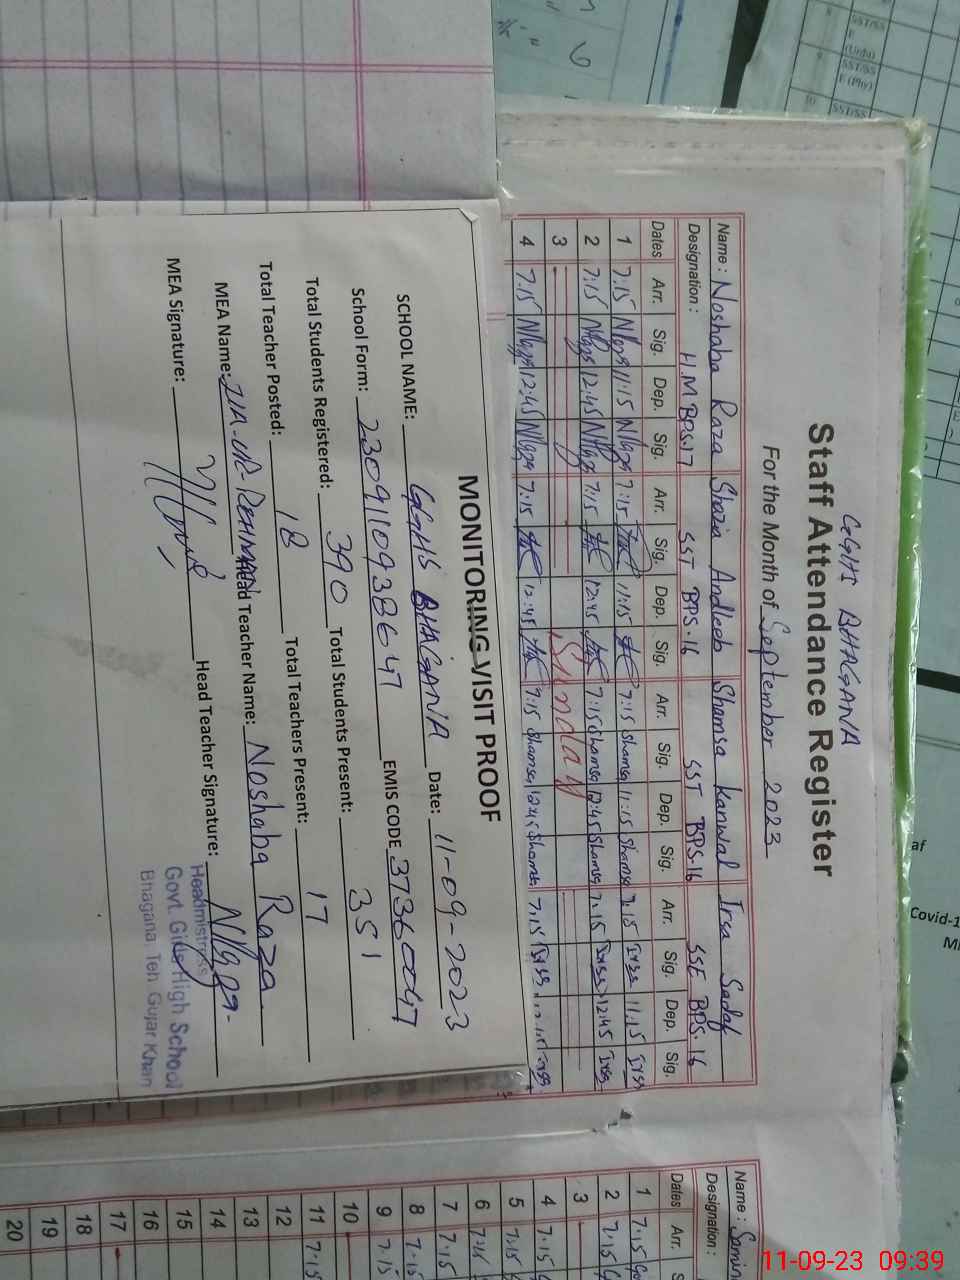 GGHS BHAGANA
Staff Attendance Register
For the Month of September 2023
Name: Noshaba Raza Shazia Andleeb Shamsa Kanwal Irsa Sadaf
Designation: H.M BPS-17 SST BPS-16 SST BPS-16 SSE BPS-16
Dates Arr. Sig. Dep. Sig. Arr. Sig. Dep. Sig. Arr. Sig. Dep. Sig. Arr. Sig. Dep. Sig.
1 7:15 11:15 7:15 11:15 7:15 Shamsa 11:15 Shamsa 7:15 Irsa 11:15 Irsa
2 7:15 12:45 7:15 12:45 7:15 Shamsa 12:45 Shamsa 7:15 Irsa 12:45 Irsa
3 Sunday
4 7:15 12:45 7:15 12:45 7:15 Shamsa 12:45 Shamsa 7:15 Irsa
MONITORING VISIT PROOF
SCHOOL NAME: GGHS BHAGANA Date: 11-09-2023
School Form: 2309110938647 EMIS CODE 37360047
Total Students Registered: 390 Total Students Present: 351
Total Teacher Posted: 18 Total Teachers Present: 17
MEA Name: ZIA-UR-REHMAN Head Teacher Name: Noshaba Raza
MEA Signature: Head Teacher Signature:
Headmistress
Govt. Girls High School
Bhagana Teh Gujar Khan
Name:
Designation:
Dates Arr.
1 7:15
2 7:15
3
4 7:15
5 7:15
6 7:15
7 7:15
8 7:15
9 7:15
10
11 7:15
12
13
14
15
16
17
18
19
20
SST/SS
E
(Urdu)
9 SST/SS
E (Phy)
10 SST/SS
6
af
Covid-1
11-09-23 09:39